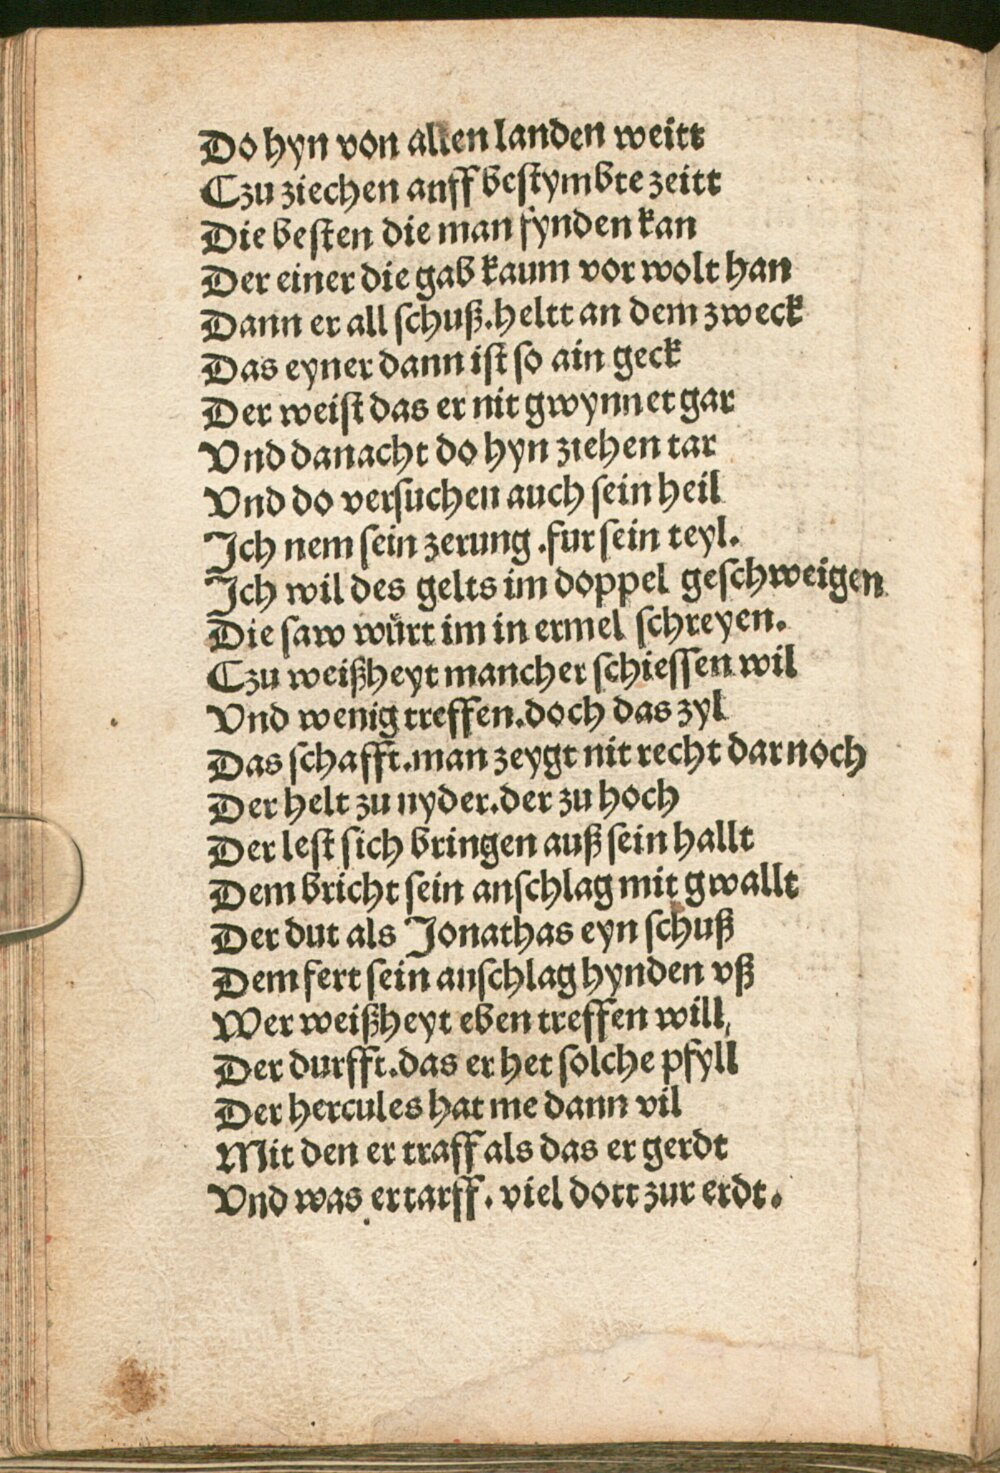 Do hyn von allen landen weitt
Czu ziechen anff bestymbte zeitt
Die besten die man fynden kan
Der einer die gab kaum vor wolt han
Dann er all schuß.heltt an dem zweck
Das eyner dann ist so ain geck
Der weist das er nit gwynnet gar
Vnd danacht do hyn ziehen tar
Vnd do versuchen auch sein heil
Ich nem sein zerung .fur sein teyl.
Ich wil des gelts im doppel geschweigen
Die saw würt im in ermel schreyen.
Czu weißheyt mancher schiessen wil
Vnd wenig treffen.doch das zyl
Das schafft.man zeygt nit recht dar noch
Der helt zu nyder.der zu hoch
Der lest sich bringen auß sein hallt
Dem bricht sein anschlag mit gwallt
Der dut als Jonathas eyn schuß
Dem fert sein anschlag hynden vß
Wer weißheyt eben treffen will,
Der durfft.das er het solche pfyll
Der hercules hat me dann vil
Mit den er traff als das er gerdt
Vnd was er tarff. viel dott zur erdt.